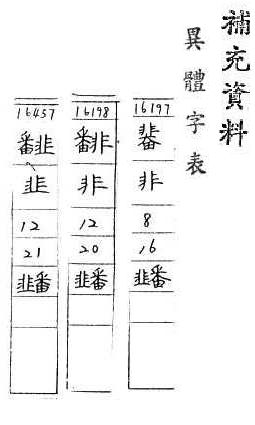 補充資料
異體字表
16197
非
8
16
䪤
16198
非
12
20
䪤
16457
韭
12
21
䪤